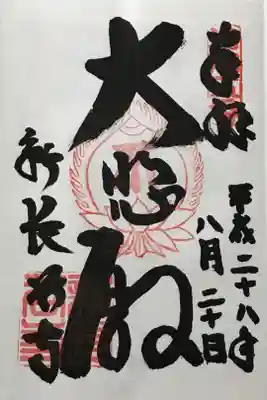 奉拝
平成二十八年
八月二十日
大悲殿
新長谷寺